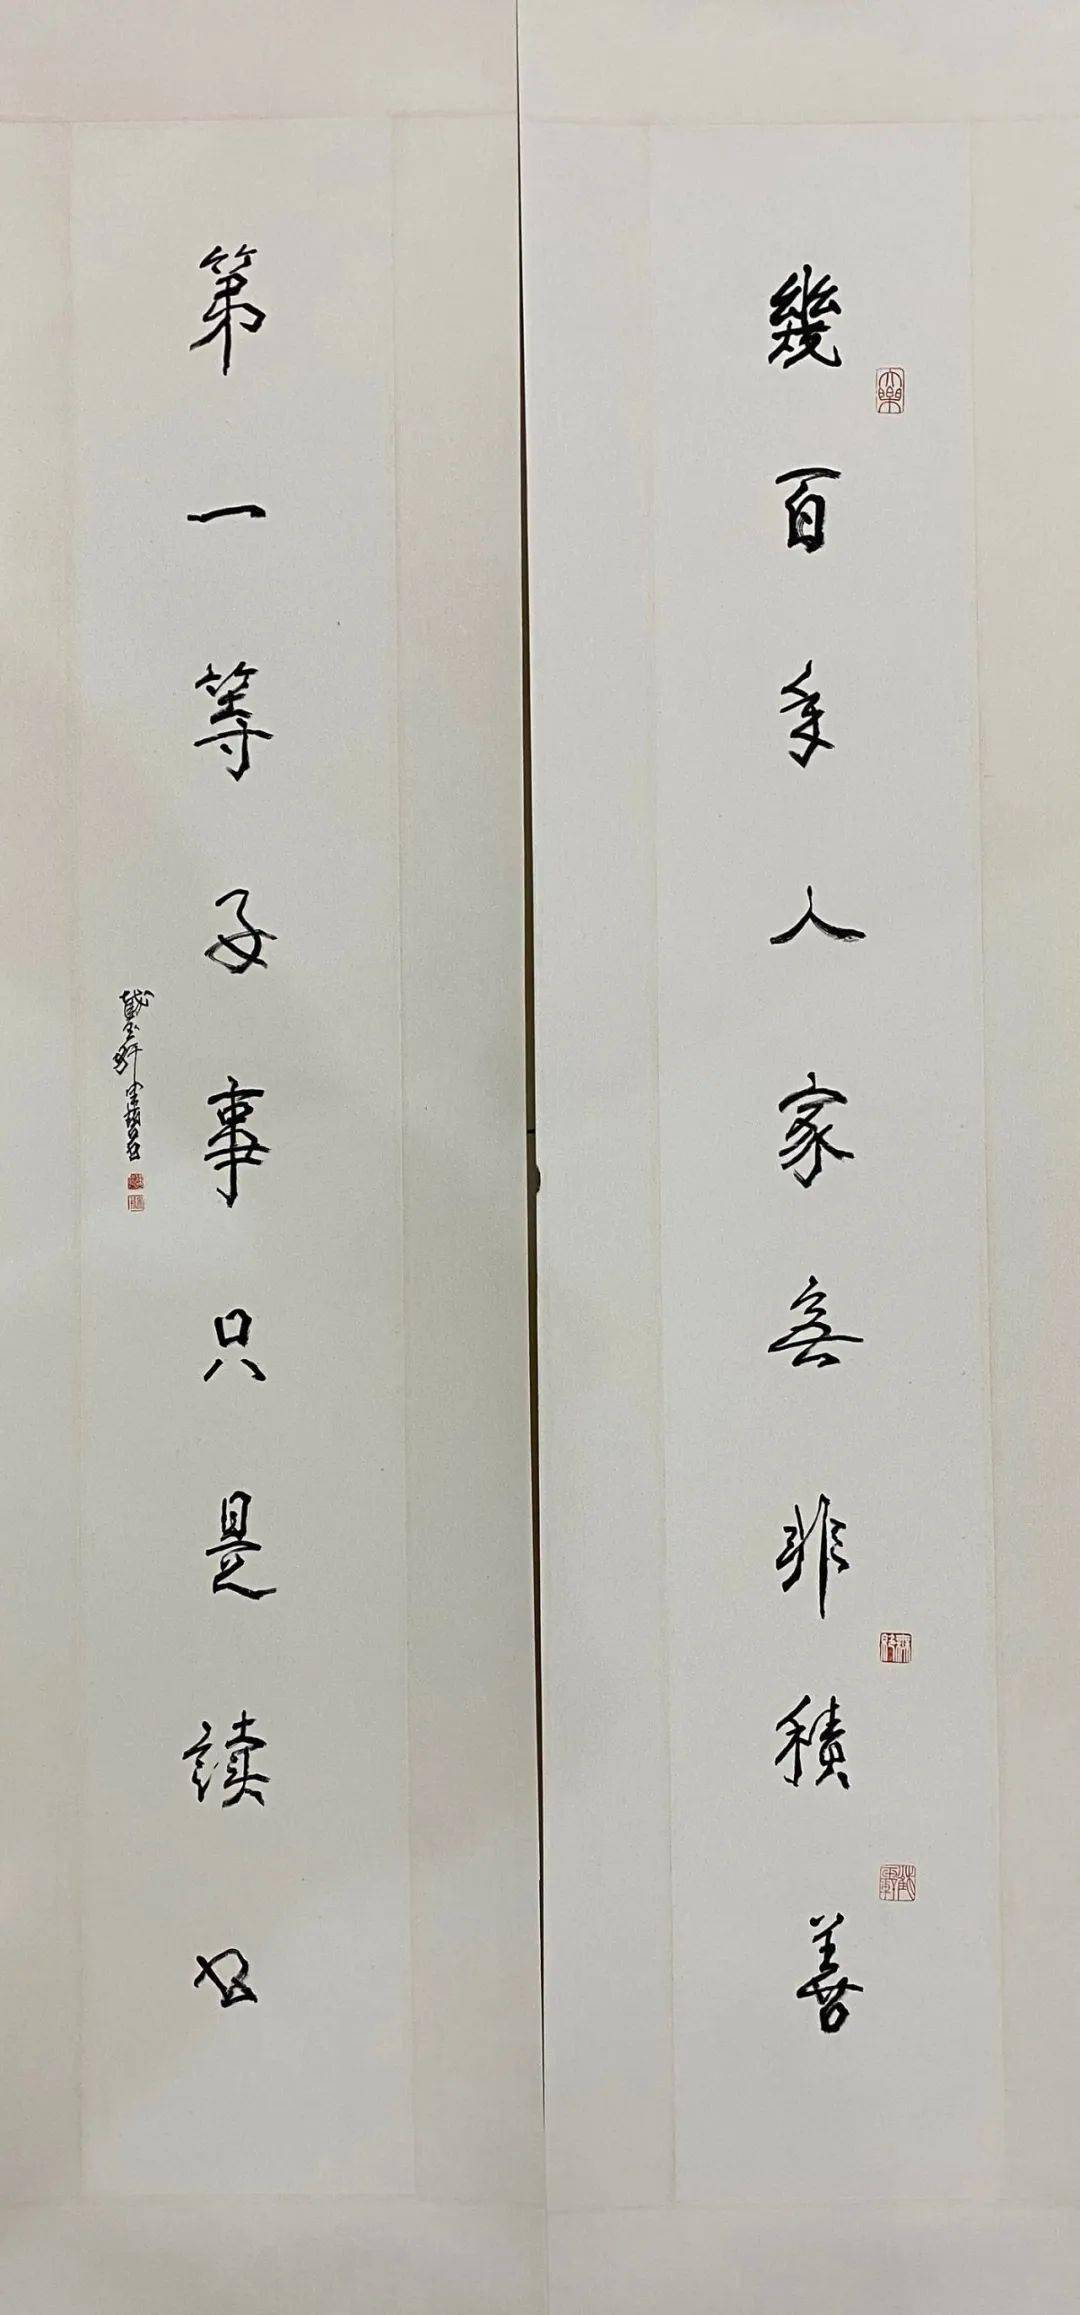 幾百年人家無非積善
第一等好事只是讀書